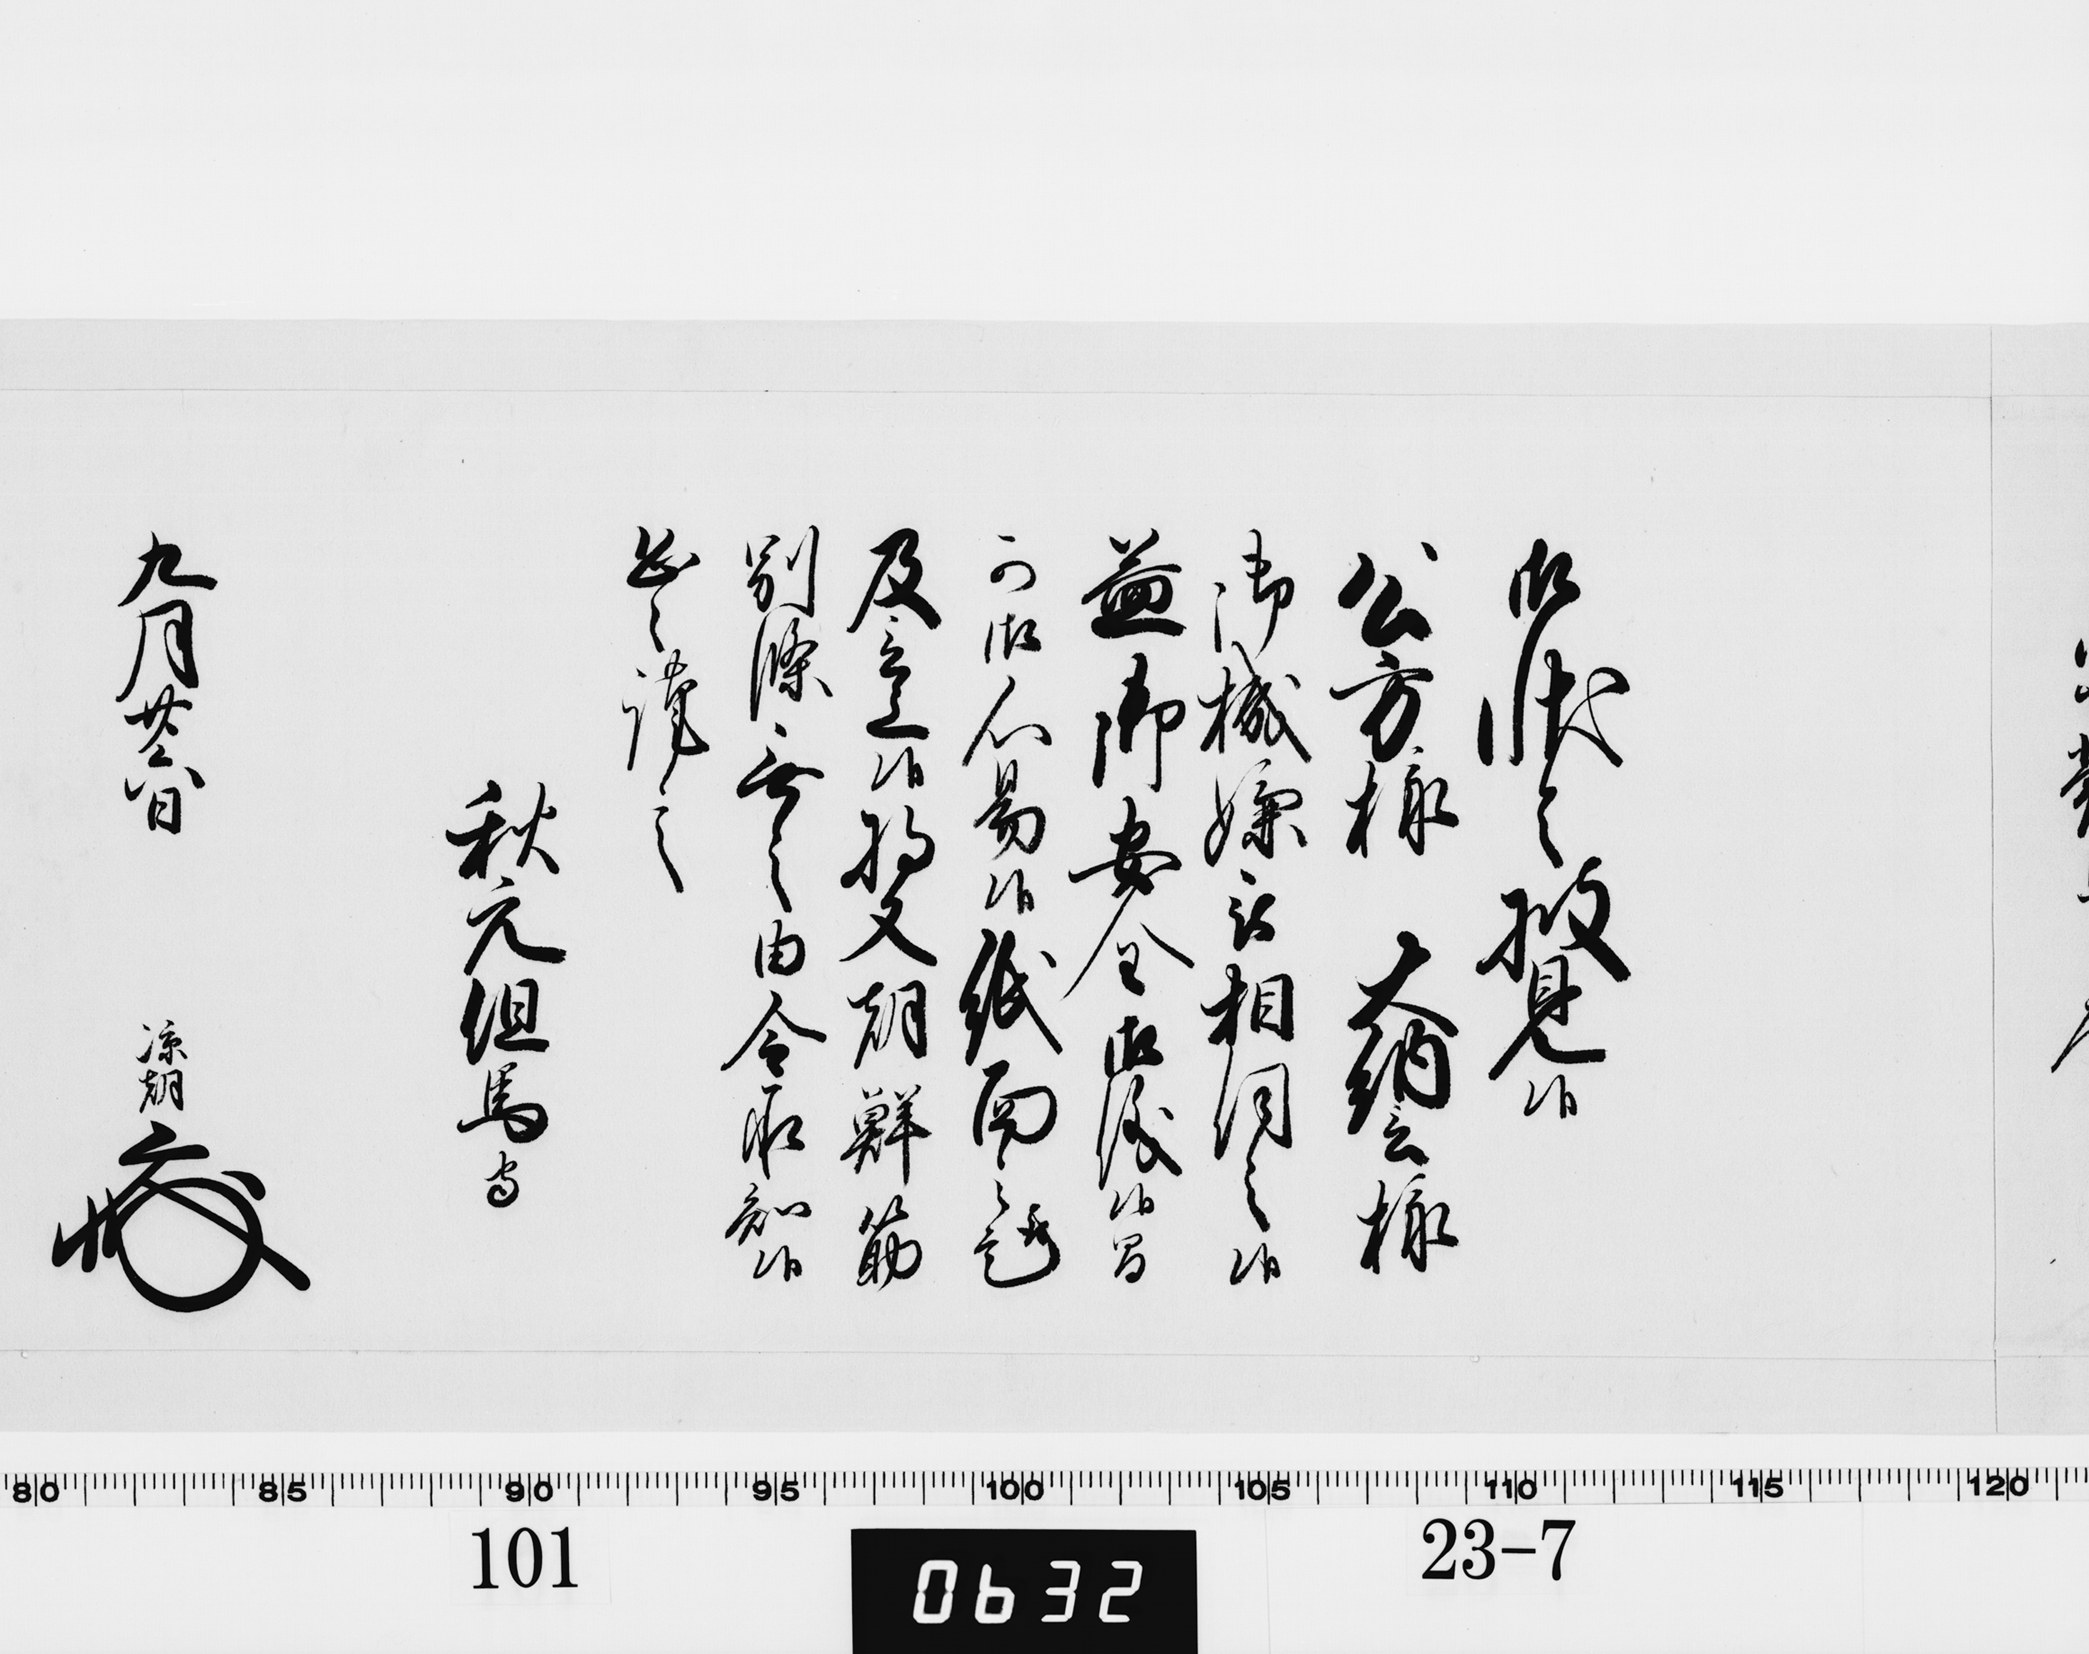 御状令披見候
公方様　大納言様
御機嫌被相伺之候
益御安全御儀候間
可御心易候紙面之趣
及言上候将又朝鮮筋
別條無之由令承知候
恐々謹言
秋元但馬守
九月廿六日　凉朝
80 85 90 95 100 105 110 115 120
101
0632
23-7